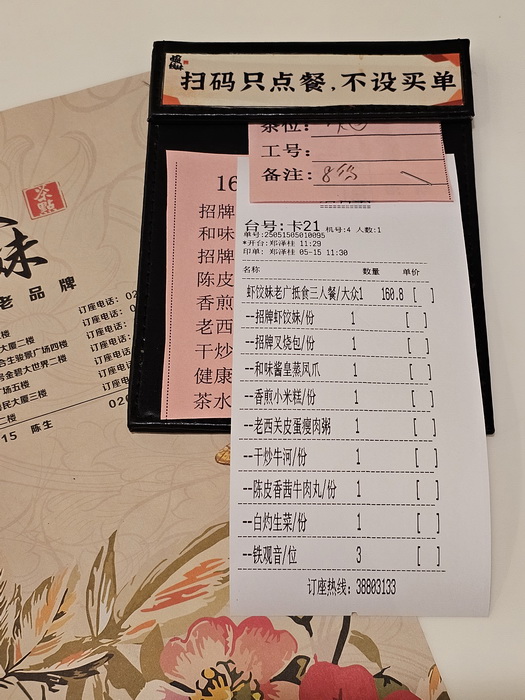 扫码只点餐，不设买单
茶位：
工号：
备注：8折
16
招牌
和味
招牌
陈皮
香煎
老西
干炒
健康
茶水
台号：卡21 机号：4 人数：1
单号：25051505010095
*开台：郑泽桂 11:29
印单：郑泽桂 05-15 11:30
名称 数量 单价
虾饺妹老广抵食三人餐/大众1 160.8 [ ]
--招牌虾饺妹/份 1 [ ]
--招牌叉烧包/份 1 [ ]
--和味酱皇蒸凤爪 1 [ ]
--香煎小米糕/份 1 [ ]
--老西关皮蛋瘦肉粥 1 [ ]
--干炒牛河/份 1 [ ]
--陈皮香茜牛肉丸/份 1 [ ]
--白灼生菜/份 1 [ ]
--铁观音/位 3 [ ]
订座热线：38803133
茶點
妹
老品牌
楼 订座电话：02
大厦二楼 订座电话：0
合生骏景广场四楼 订座电话
号金碧大世界二楼 订座电
广场五楼 订座电
民大厦三楼 订座电
二楼 020
15 陈生